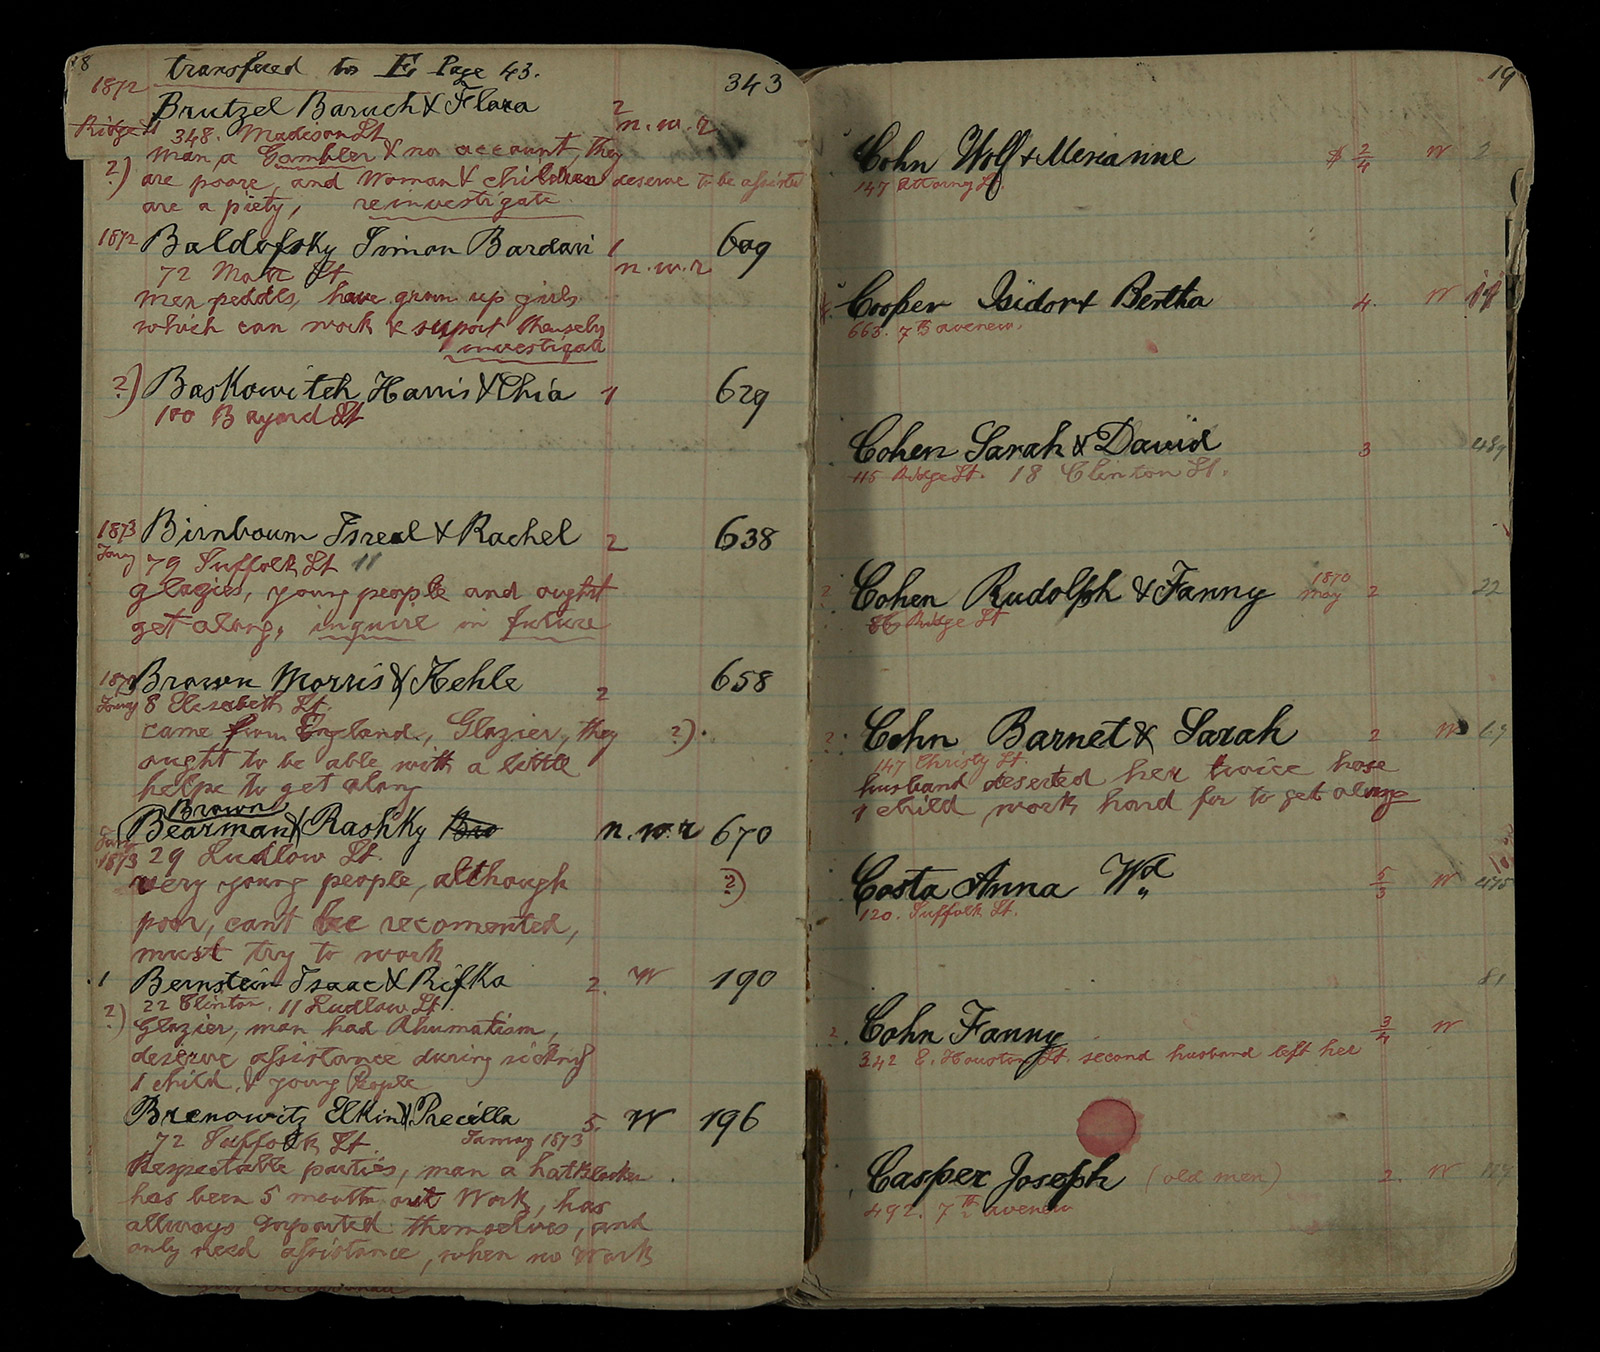 transfered to E Page 43.
1872
343
Brutzel Baruch & Flora 2
Ridge St 348. Madison St n.w.r
man, a Gambler & no account, they
?) are poore, and Woman & children deserve to be assisted
are a piety, reinvestigate
1872 Baldofsky Simon Bardavi 1 609
72 Mott St n.w.r
men peddls, have grown up girls
which can work & suport themselv
investigate
?) Baskowitch Harris & Chia 1 629
100 Bayard St
1873 Birnboum Isreal & Rachel 2 638
Jany 79 Suffolk St 11
glazies, young people and ought
get along, inquire in future
Brown Morris & Hehle 2 658
Jany 8 Elesabeth St.
came from England, Glazier, they ?)
ought to be able with a little
helpe to get along
Brown
Bearman & Rashky Bro n.w.r 670
1873 29 Ludlow St.
very young people, although ?)
poor, cant be recomented,
must try to work
1 Bernstein Isaac & Rifka 2. W 190
22 Clinton. 11 Ludlow St.
?) Glazier, man had Rhumatism,
deserve assistance during sickness
1 child, & young People
Brenowitz Elkin & Precilla 5. W 196
72 Suffolk St Januay 1873
Respectable parties, man a
has been 5 month out Work, has
allways suported themselves, and
only need assistance, when no Work
19
Cohn Wolf & Merianne 2/4 W 2
147 Attorny St.
Cooper Isidor & Bertha 4. W
663. 7th avenew.
Cohen Sarah & David 3 489
115 Ridge St. 18 Clinton St.
? Cohen Rudolph & Fanny 1870 May 2 22
86 Ridge St
? Cohn Barnet & Sarah 2 W 69
147 Christy St.
husband deserted her twice hase
1 child work hard for to get along
Costa Anna Wd 5/3 W 475
120. Suffolk St.
81
? Cohn Fanny 3/4 W
342 E. Houston St. second husband left her
Casper Joseph (old men) 2. W
492. 7th avenew